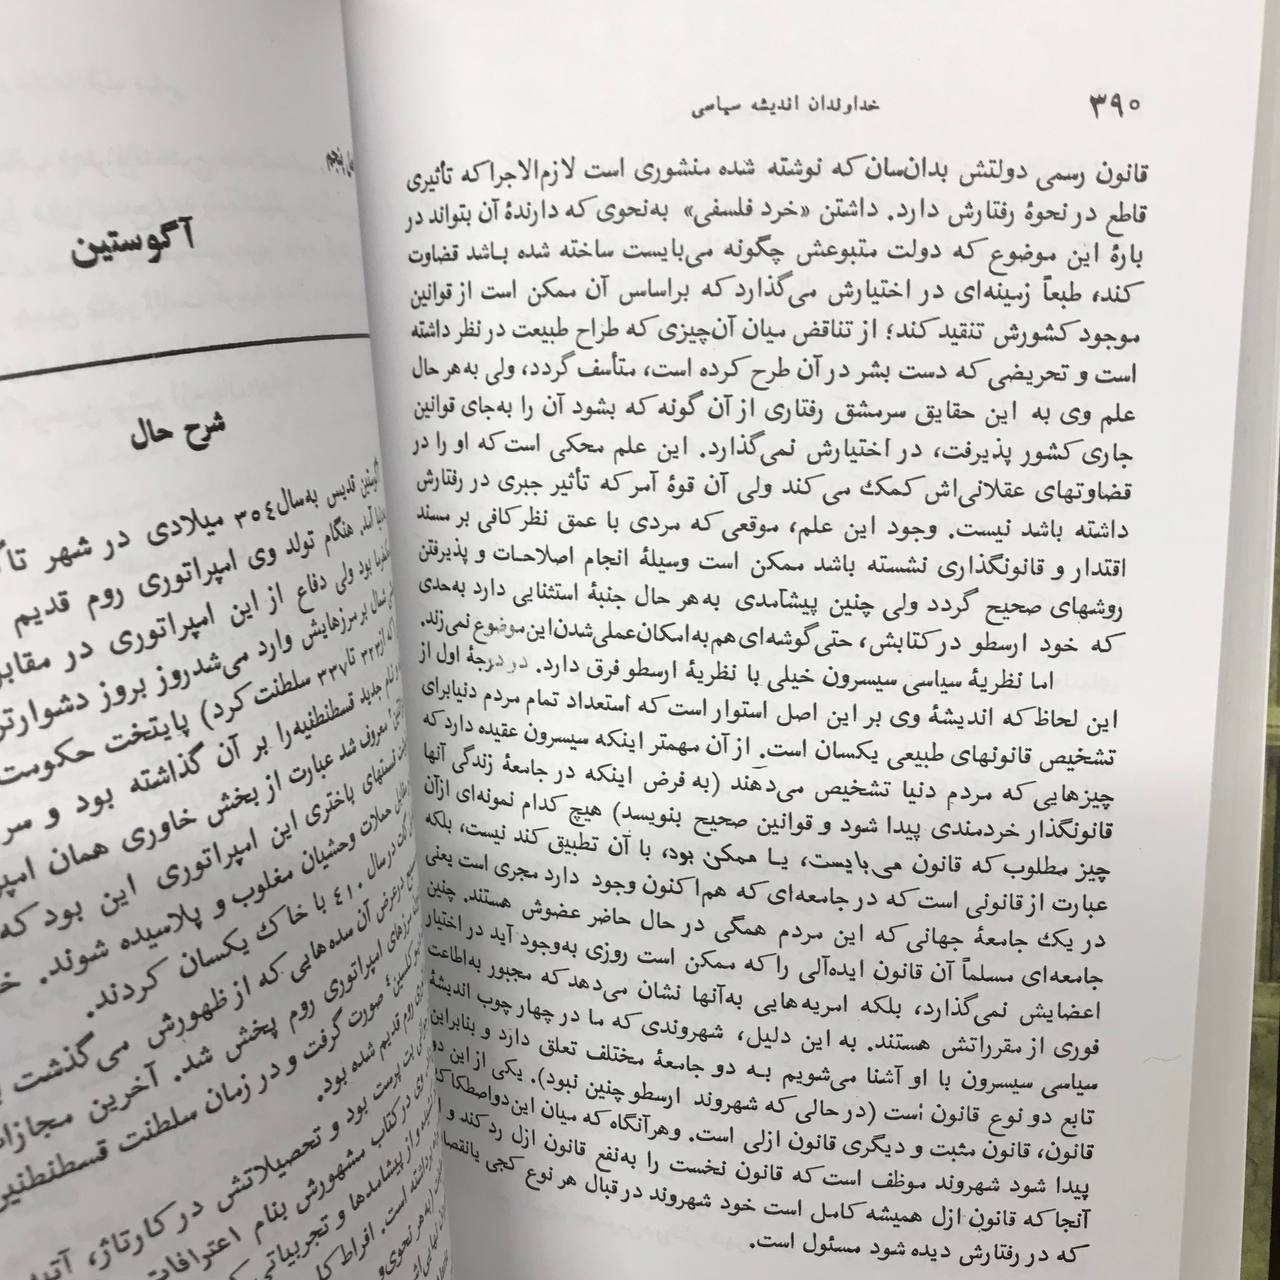 ۳۹۰
خداوندان اندیشه سیاسی
قانون رسمی دولتش بدان‌سان که نوشته شده منشوری است لازم‌الاجرا که تأثیری
قاطع در نحوهٔ رفتارش دارد. داشتن «خرد فلسفی» به‌نحوی که دارندهٔ آن بتواند در
بارهٔ این موضوع که دولت متبوعش چگونه می‌بایست ساخته شده باشد قضاوت
کند، طبعاً زمینه‌ای در اختیارش می‌گذارد که براساس آن ممکن است از قوانین
موجود کشورش تنقید کند؛ از تناقض میان آن‌چیزی که طراح طبیعت در نظر داشته
است و تحریضی که دست بشر در آن طرح کرده است، متأسف گردد، ولی به‌هر حال
علم وی به این حقایق سرمشق رفتاری از آن گونه که بشود آن را به‌جای قوانین
جاری کشور پذیرفت، در اختیارش نمی‌گذارد. این علم محکی است که او را در
قضاوتهای عقلانی‌اش کمک می کند ولی آن قوهٔ آمر که تأثیر جبری در رفتارش
داشته باشد نیست. وجود این علم، موقعی که مردی با عمق نظر کافی بر مسند
اقتدار و قانونگذاری نشسته باشد ممکن است وسیلهٔ انجام اصلاحات و پذیرفتن
روشهای صحیح گردد ولی چنین پیشآمدی به‌هر حال جنبهٔ استثنایی دارد به‌حدی
که خود ارسطو در کتابش، حتی گوشه‌ای هم به امکان عملی شدن این موضوع نمی‌زند.
اما نظریهٔ سیاسی سیسرون خیلی با نظریهٔ ارسطو فرق دارد. در درجهٔ اول از
این لحاظ که اندیشهٔ وی بر این اصل استوار است که استعداد تمام مردم دنیا برای
تشخیص قانونهای طبیعی یکسان است. از آن مهمتر اینکه سیسرون عقیده دارد که
چیزهایی که مردم دنیا تشخیص می‌دهند (به فرض اینکه در جامعهٔ زندگی آنها
قانونگذار خردمندی پیدا شود و قوانین صحیح بنویسد) هیچ کدام نمونه‌ای از آن
چیز مطلوب که قانون می‌بایست، یا ممکن بود، با آن تطبیق کند نیست، بلکه
عبارت از قانونی است که در جامعه‌ای که هم‌اکنون وجود دارد مجری است یعنی
در یک جامعهٔ جهانی که این مردم همگی در حال حاضر عضوش هستند. چنین
جامعه‌ای مسلماً آن قانون ایده‌آلی را که ممکن است روزی به‌وجود آید در اختیار
اعضایش نمی‌گذارد، بلکه امریه‌هایی به‌آنها نشان می‌دهد که مجبور به‌اطاعت
فوری از مقرراتش هستند. به این دلیل، شهروندی که ما در چهار چوب اندیشهٔ
سیاسی سیسرون با او آشنا می‌شویم به دو جامعهٔ مختلف تعلق دارد و بنابراین
تابع دو نوع قانون است (در حالی که شهروند ارسطو چنین نبود). یکی از این دو
قانون، قانون مثبت و دیگری قانون ازلی است. و هر آنگاه که میان این دو اصطکاک
پیدا شود شهروند موظف است که قانون نخست را به‌نفع قانون ازل رد کند و
آنجا که قانون ازل همیشه کامل است خود شهروند در قبال هر نوع کجی یا نقصا
که در رفتارش دیده شود مسئول است.
آگوستین
شرح حال
آگوستین قدیس به‌سال ۳۵٤ میلادی در شهر
هنگام تولد وی امپراتوری روم قدیم
بود ولی دفاع از این امپراتوری در مقابل
بر مرزهایش وارد می‌شد روز بروز
تا ۳۳۷ سلطنت کرد) پایتخت حکومت
جدید قسطنطنیه را بر آن گذاشته بود و
معروف شد عبارت از بخش خاوری همان
باختری این امپراتوری این بود که
حملات وحشیان مغلوب و پلاسیده شوند.
در سال ٤۱۰ با خاک یکسان کردند.
در عرض آن سده‌هایی که از ظهورش می‌گذشت
مرزهای امپراتوری روم پخش شد. آخرین
صورت گرفت و در زمان سلطنت
روم قدیم شده بود.
بت پرست بود و تحصیلاتش در کارتاژ،
در کتاب مشهورش بنام اعترافات
از پیشامدها و تجربیاتی
است. افراط